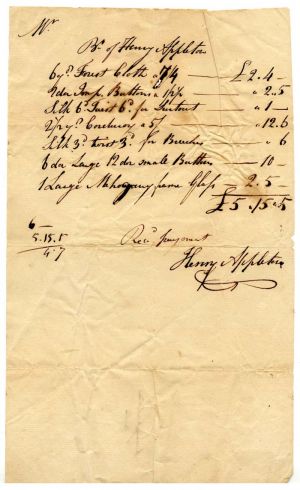 Mr.
Bt. of Henry Appleton
6 yd. Forest Cloth a 7/4 — £ 2.4 —
Buttons a 1/2½ — " 2.5
Silk 6d. Twist 6d. for Surtout — " 1 —
2½ yd. Corduroy a 5/ — " 12.6
Silk 3d. twist 3d. for Breeches — " 6
6 doz Large 12 doz small Buttons — 10 —
1 Large Mahogany frame Glass 2.5 —
£ 5.15 " 5
6 —
5.15.5
4.7
Recd. payment
Henry Appleton